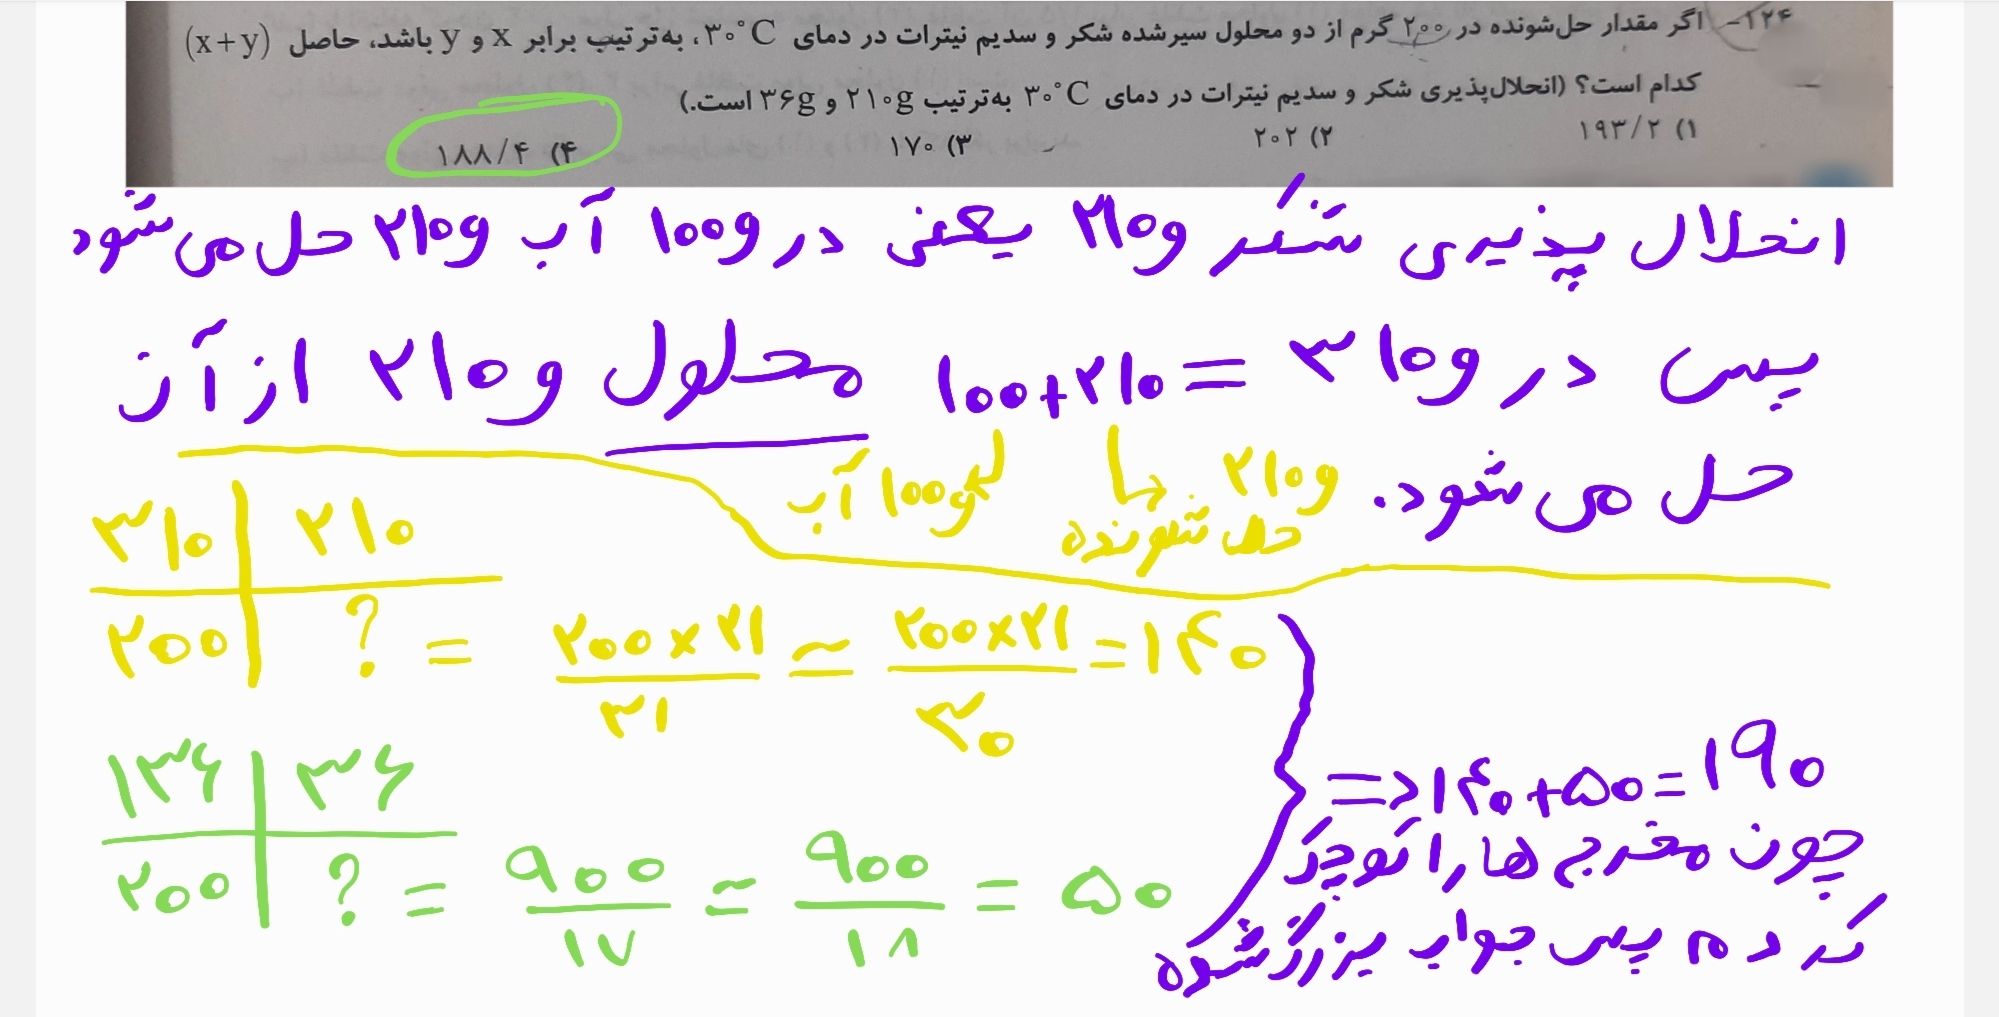 ۱۲۴- اگر مقدار حل‌شونده در ۲۰۰ گرم از دو محلول سیرشده شکر و سدیم نیترات در دمای ۳۰°C، به‌ترتیب برابر x و y باشد، حاصل (x+y)
کدام است؟ (انحلال‌پذیری شکر و سدیم نیترات در دمای ۳۰°C به‌ترتیب ۲۱۰g و ۳۶g است.)
۱) ۱۹۳/۲ ۲) ۲۰۲ ۳) ۱۷۰ ۴) ۱۸۸/۴
انحلال پذیری شکر ۲۱۰g یعنی در ۱۰۰g آب ۲۱۰g حل می شود
پس در ۳۱۰g = ۱۰۰+۲۱۰ محلول ۲۱۰g از آن
حل می شود.
۲۱۰g حل شونده
۱۰۰g آب
۳۱۰ | ۲۱۰
۲۰۰ | ? = ۲۰۰×۲۱ / ۳۱ ≃ ۲۰۰×۲۱ / ۳۰ = ۱۴۰
۱۳۶ | ۳۶
۲۰۰ | ? = ۹۰۰ / ۱۷ ≃ ۹۰۰ / ۱۸ = ۵۰
=> ۱۴۰+۵۰=۱۹۰
چون مخرج ها را کوچک
کردم پس جواب بزرگ شده